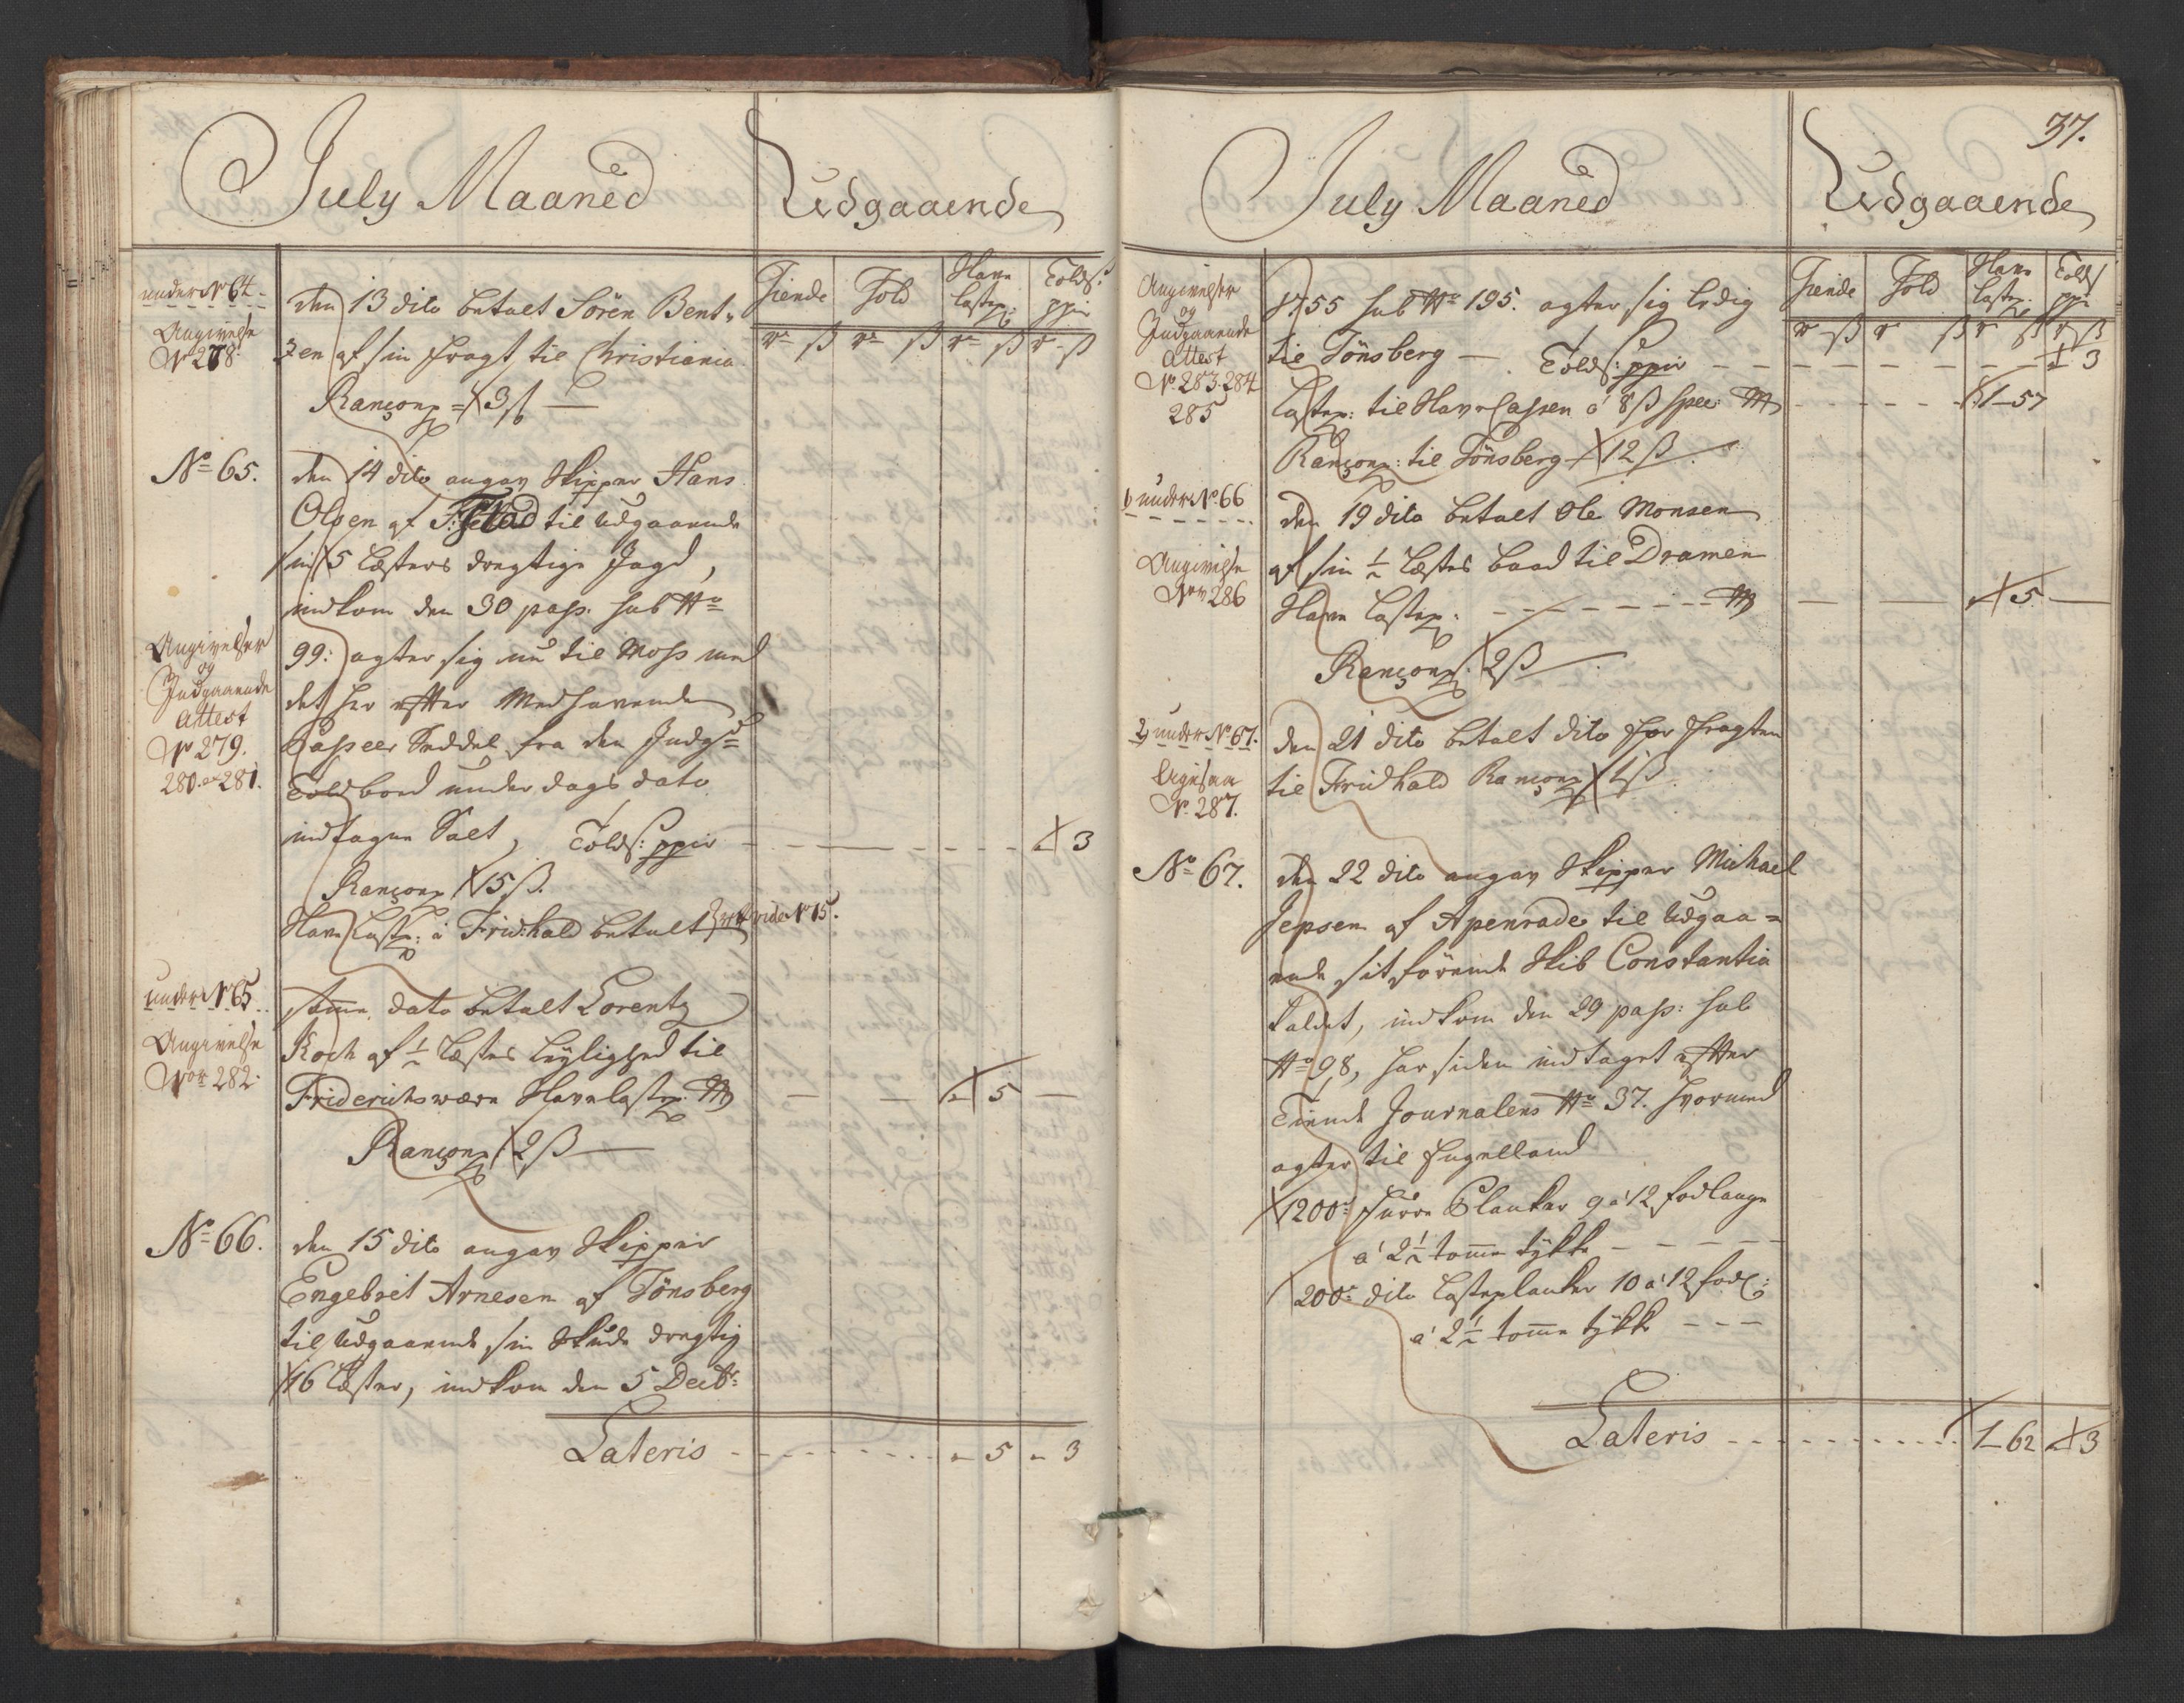 July Maaned
Udgaaende
Tiende
Told
Havne
Lastep:
Tolds:
ppir
rd ß rd ß rd ß r ß
under No 64
Angivelse
No 278.
den 13 dito betalt Sören Bent-
zen af sin fragt til Christiania
Ranconp = 3 ß
No 65.
den 14 dito angav Skipper Hans
Olsen af F: Stad til udgaaende
sin 5 Læsters drægtige Jagd,
indkom den 30 pass. sub No
99: agter sig nu til Moss med
det her effter Medhavende
Passeer Seddel fra den Indgde
Toldbod under dags dato
indtagne Salt, Tolds: ppir - - - 3
Ranconp 15 ß.
Havne Lastp: á Frid:hald betalt under No 15.
Angivelser
og
Indgaaende
Attest
No 279.
280. og 281.
under No 65
Angivelse
Nor 282.
samme dato betalt Lorentz
Koch af ½ Læsters leylighed til
Friderichsværn Havnelastp: - - 5 -
Ranconp 2 ß
No 66.
den 15 dito angav Skipper
Engebret Arnesen af Tönsberg
til udgaaende sin Skude drægtig
16 Læster, indkom den 5 Decbr:
Lateris - - - 5 - 3
37.
July Maaned
Udgaaende
Tiende
Told
Havne
Lastep:
Tolds
ppir
r ß r ß r ß r ß
Angivelser
og
Indgaaende
Attest
No 283. 284
285
1755 sub No 195. agter sig ledig
til Tönsberg — Tolds: ppir - - - 3
Lastep: til Havne Cassen á 8 ß spec: - - - 1 - 57
Ranconp: til Tönsberg 12 ß
1 under No 66
Angivelse
Nor 286
den 19 dito betalt Ole Monsen
af sin ½ Læsters baad til Dramen
Havne Lastep: - - - 5 -
Ranconp: 2 ß
2 under No 67.
ligesaa
No 287.
den 21 dito betalt dito for fragten
til Fridhald Ranconp 1 ß
No 67.
den 22 dito angav Skipper Michael
Jepsen af Apenrade til udgaa-
ende sit förende Skib Constantia
kaldet, indkom den 29 pass: sub
No 98, har siden indtaget effter
Tiende Journalens No 37. hvormed
agter til Engelland
1200: furre Planker 9 a 12 fod lange
á 2½ tomme tykke - - -
200: dito Lasteplanker 10 a 12 fod l:
á 2½ tomme tykk - - -
Lateris - - - 1 - 62 - 3